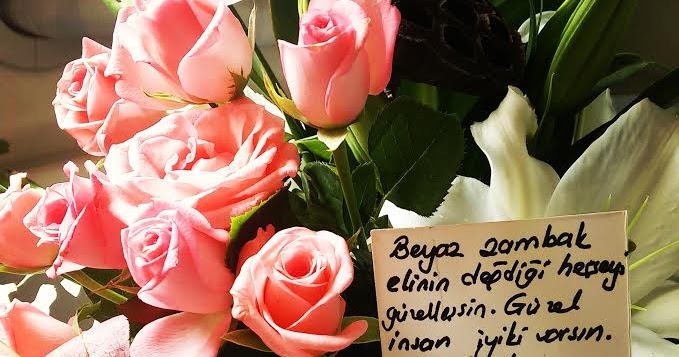 Beyaz zambak
elinin değdiği herşeyi
güzelleşsin. Güzel
insan iyiki varsın.